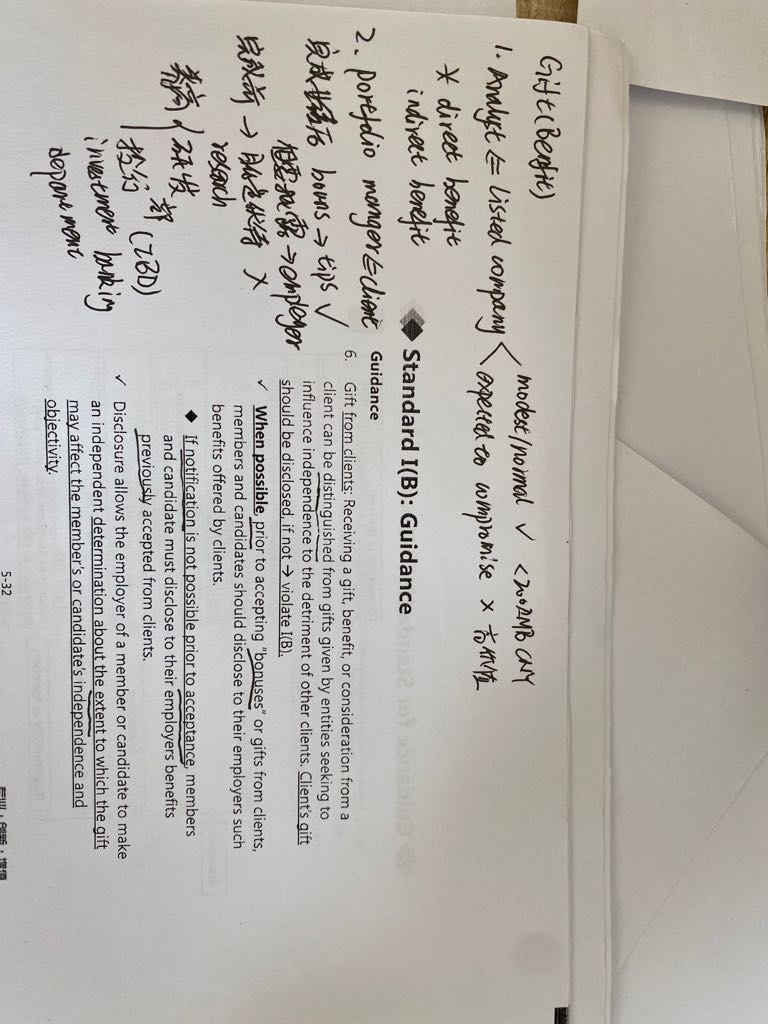 Gift(Benfit)
1. Analyst ⇐ Listed company < modest/normal ✓ <200RMB CNY
expected to compromise ×
* direct benefit
indirect benefit
2. portfolio manager ⇐ client
完成 bouns → tips ✓
→ employer
完成前 → ×
research
研发部
投行 (IBD)
investment banking
department
Standard I(B): Guidance
Guidance
6. Gift from clients: Receiving a gift, benefit, or consideration from a
client can be distinguished from gifts given by entities seeking to
influence independence to the detriment of other clients. Client's gift
should be disclosed, if not → violate I(B).
✓ When possible, prior to accepting "bonuses" or gifts from clients,
members and candidates should disclose to their employers such
benefits offered by clients.
◆ If notification is not possible prior to acceptance, members
and candidate must disclose to their employers benefits
previously accepted from clients.
✓ Disclosure allows the employer of a member or candidate to make
an independent determination about the extent to which the gift
may affect the member's or candidate's independence and
objectivity.
5-32